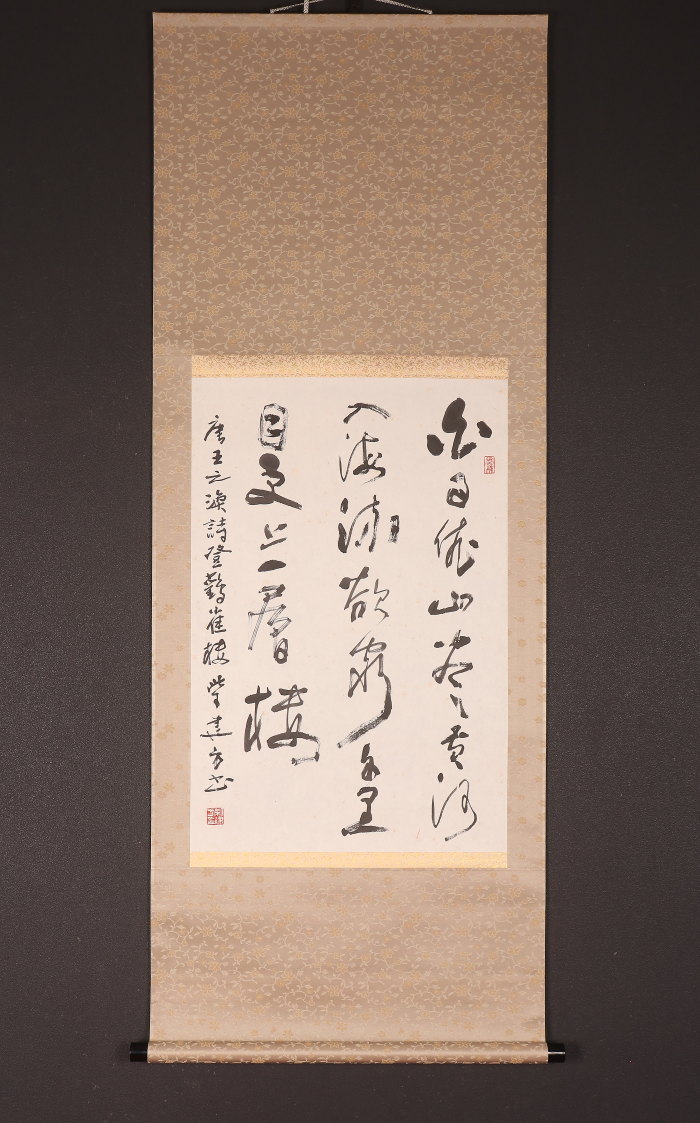 白日依山尽黄河
入海流欲窮千里
目更上一層楼
唐王之渙詩登鸛雀楼 柴建方书